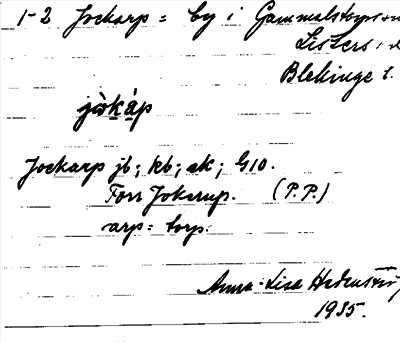 1-2 Jockarp = by i Gammalstorps
Listers
Blekinge l.
jòkáp
Jockarp jb; kb; ek; G10.
Förr Jokerup. (P.P.)
arp = torp.
Anna-Lisa
1935.